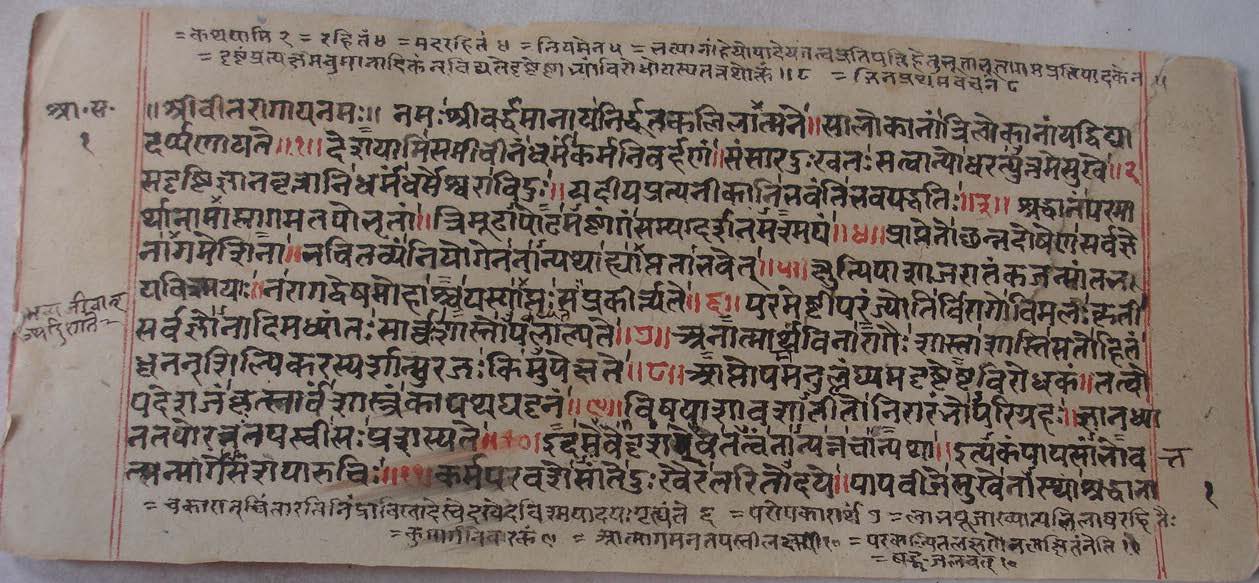 =कथयामि २ = रहितं४ =मदरहितं ४ =नियमेन५
श्रा.स.
१
॥श्रीवीतरागायनमः॥ नमःश्रीवर्द्धमानायनिर्द्धूतकलिलात्मने॥सालोकानांत्रिलोकानांयद्विद्या
दर्प्पणायते॥१॥देशयामिसमीचीनंधर्मंकर्मनिवर्हणं॥संसारदुःखतःसत्वान्योधरत्युत्तमेसुखे॥२
सदृष्टिज्ञानवृत्तानिधर्मंधर्मेश्वराविदुः॥यदीयप्रत्यनीकानिभवंतिभवपद्धतिः॥३॥ श्रद्धानंपरमा
र्थानामाप्तागमतपोभृतां॥त्रिमूढापोढमष्टांगंसम्यग्दर्शनमस्मयं॥४॥आप्तेनोछिन्नदोषेणसर्वज्ञे
नागमेशिना॥भवितव्यंनियोगेननान्यथाह्याप्तताभवेत्॥५॥क्षुत्पिपासाजरातंकजन्मांतकभ
यविस्मयाः॥नरागद्वेषमोहाश्चयस्याप्तःसप्रकीर्त्यते॥६॥परमेष्टीपरंज्योतिर्विरागोविमलःकृती
सर्वज्ञोनादिमध्यांतःसार्व्वःशास्तोपलाल्यते॥७॥अनात्मार्थंविनारागैःशास्ताशास्तिसतोहितं
ध्वनन्शिल्पिकरस्पर्शान्मुरजःकिमुपेक्षते॥८॥आप्तोपज्ञमनुल्लंघ्यमदृष्टेष्टविरोधकं॥तत्वो
पदेशकृत्सार्वंशास्त्रंकापथघट्टनं॥९॥विषयाशावशातीतोनिरारंभोपरिग्रहः॥ज्ञानध्या
नतपोरत्नस्तपस्वीसःप्रशस्यते॥१०॥इदमेवेदृशमेवतत्वंनान्यन्नचान्यथा॥इत्यकंपायसांभोव
त्सन्मार्गेसंशयारुचिः॥११॥कर्मपरवशेसांतेदुःखैरंतरितोदये॥पापबीजेसुखेनास्थाश्रद्धाना
१
=परोपकारार्थं ७